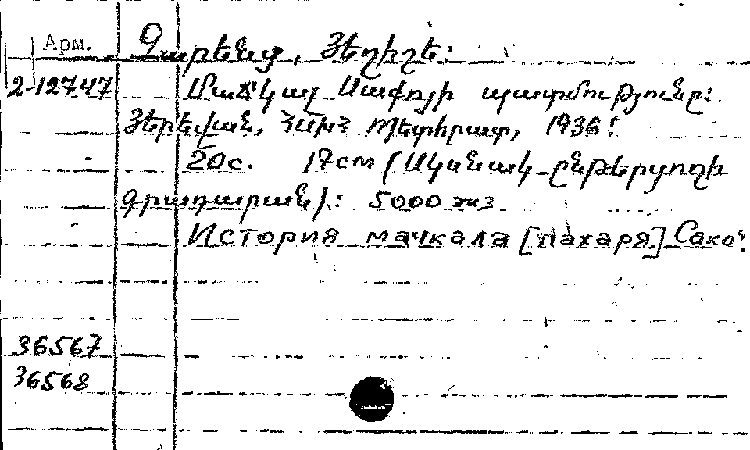 Арм. Չարենց, Յեղիշե:
2-12747 Մաճկալ Սաքոյի պատմությունը:
Յերեվան, ՀԽՍՀ Պետհրատ, 1936:
20с. 17cm (Սկսնակ ընթերցողի
գրադարան): 5000 экз
История мачкала [пахаря] Сако.
36567
36568